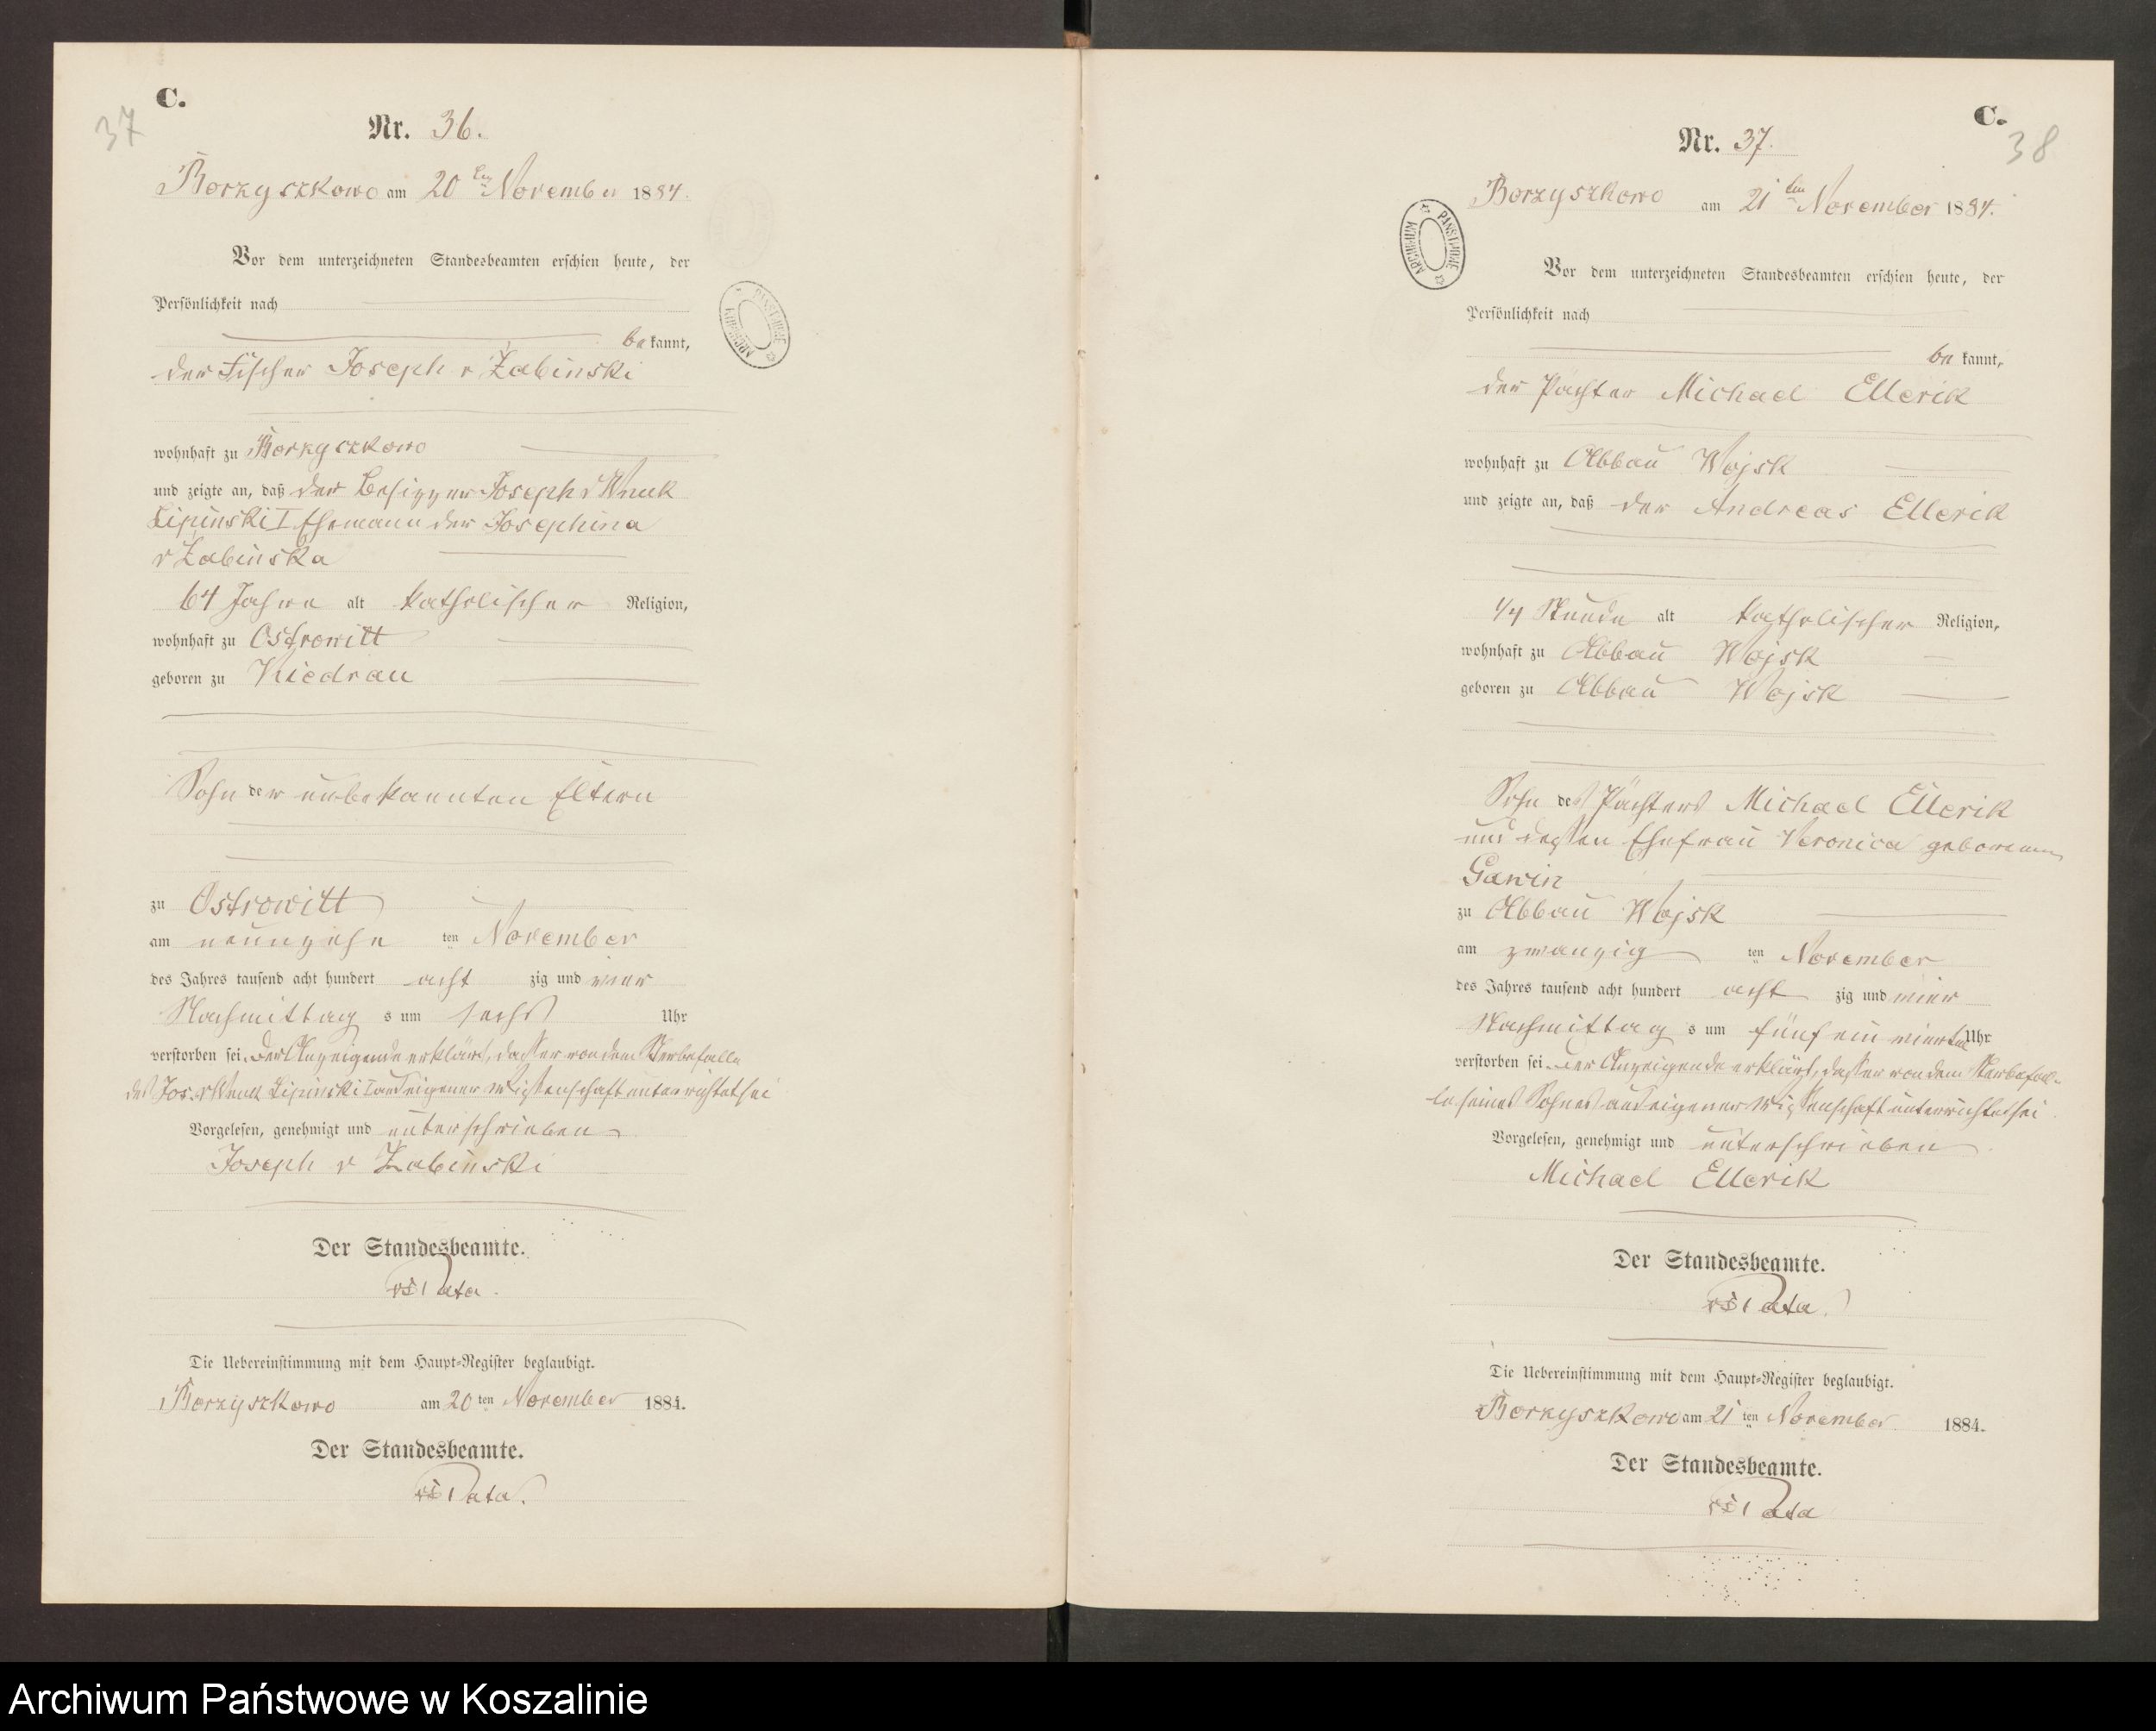 C.
37
Nr. 36.
Borzyszkowo am 20ten November 1884.
Vor dem unterzeichneten Standesbeamten erschien heute, der
Persönlichkeit nach
bekannt,
der Fischer Joseph v Żabinski
wohnhaft zu Borzyszkowo
und zeigte an, daß der Besitzer Joseph v Wnuk
Lipinski I Ehemann der Josephina
v Żabinska
64 Jahre alt katholischer Religion,
wohnhaft zu Ostrowitt
geboren zu Kiedrau
Sohn der unbekannten Eltern
zu Ostrowitt
am neunzehn ten November
des Jahres tausend acht hundert acht zig und vier
Nachmittag s um sechs Uhr
verstorben sei. Der Anzeigende erklärt, dass er von dem Sterbefalle
des Jos. v Wnuk Lipinski I aus eigener Wissenschaft unterrichtet sei
Vorgelesen, genehmigt und unterschrieben
Joseph v Żabinski
Der Standesbeamte.
Die Uebereinstimmung mit dem Haupt-Register beglaubigt.
Borzyszkowo am 20 ten November 1884.
Der Standesbeamte.
ARCHIWUM PAŃSTWOWE
C.
38
Nr. 37.
Borzyszkowo am 21ten November 1884.
Vor dem unterzeichneten Standesbeamten erschien heute, der
Persönlichkeit nach
bekannt,
der Pächter Michael Ellerik
wohnhaft zu Abbau Wojsk
und zeigte an, daß der Andreas Ellerik
1/4 Stunde alt katholischer Religion,
wohnhaft zu Abbau Wojsk
geboren zu Abbau Wojsk
Sohn des Pächters Michael Ellerik
und dessen Ehefrau Veronica geborenen
Gawin
zu Abbau Wojsk
am zwanzig ten November
des Jahres tausend acht hundert acht zig und vier
Nachmittag s um fünf ein viertel Uhr
verstorben sei. Der Anzeigende erklärt, dass er von dem Sterbefal-
le seines Sohnes aus eigener Wissenschaft unterrichtet sei
Vorgelesen, genehmigt und unterschrieben
Michael Ellerik
Der Standesbeamte.
Die Uebereinstimmung mit dem Haupt-Register beglaubigt.
Borzyszkowo am 21 ten November 1884.
Der Standesbeamte.
ARCHIWUM PAŃSTWOWE
Archiwum Państwowe w Koszalinie